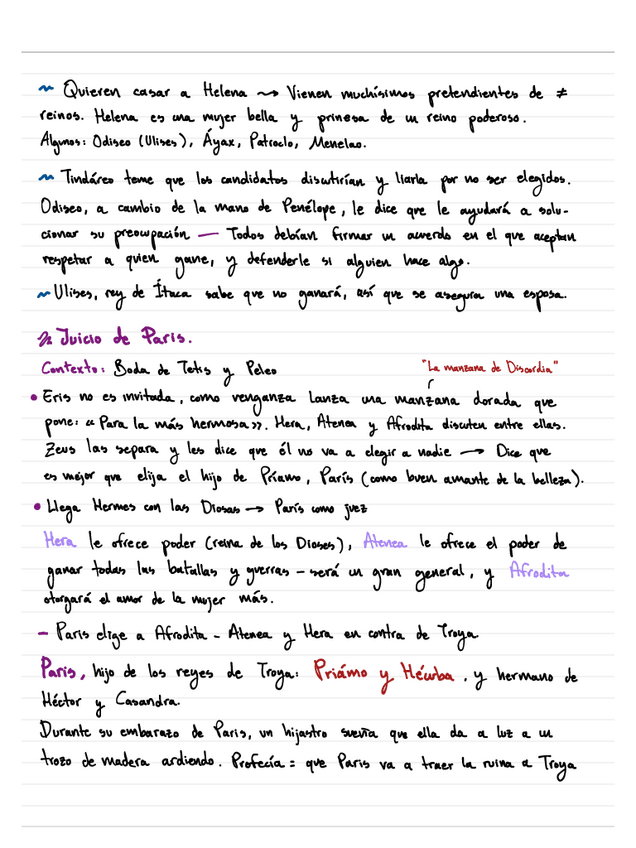 ~ Quieren casar a Helena ~> Vienen muchísimos pretendientes de ≠
reinos. Helena es una mujer bella y prinesa de un reino poderoso.
Algunos: Odiseo (Ulises), Áyax, Patroclo, Menelao.
~ Tindáreo teme que los candidatos discutirían y liarla por no ser elegidos.
Odiseo, a cambio de la mano de Penélope, le dice que le ayudará a solu-
cionar su preocupación — Todos debían firmar un acuerdo en el que aceptan
respetar a quien gane, y defenderle si alguien hace algo.
~ Ulises, rey de Ítaca sabe que no ganará, así que se asegura una esposa.
Juicio de Paris.
Contexto: Boda de Tetis y Peleo
"La manzana de Discordia"
• Eris no es invitada, como venganza lanza una manzana dorada que
pone: « Para la más hermosa ». Hera, Atenea y Afrodita discuten entre ellas.
Zeus las separa y les dice que él no va a elegir a nadie → Dice que
es mejor que elija el hijo de Príamo, París (como buen amante de la belleza).
• Llega Hermes con las Diosas → París como juez
Hera le ofrece poder (reina de los Dioses), Atenea le ofrece el poder de
ganar todas las batallas y guerras – será un gran general, y Afrodita
otorgará el amor de la mujer más.
– Paris elige a Afrodita – Atenea y Hera en contra de Troya
Paris, hijo de los reyes de Troya: Priámo y Hécuba, y hermano de
Héctor y Casandra.
Durante su embarazo de Paris, un hijastro sueña que ella da a luz a un
trozo de madera ardiendo. Profecía = que Paris va a traer la ruina a Troya